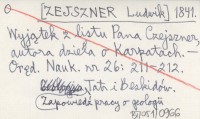 [ZEJSZNER Ludwik] 1841.
Wyjątek z listu Pana Zejsznera,
autora dzieła o Karpatach. —
Oręd. Nauk. nr 26: 211-212.
Tatr i Beskidów.
(Zapowiedź pracy o geologii
0966